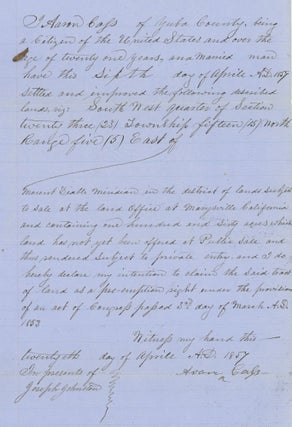 I Aaron Cass of Yuba County, being
a Citizen of the United States and over the
age of twenty one years, and a married man
have this Sixth day of Aprile A.D. 1857
Settled and improved the following described
lands, viz: South West Quarter of Section
twenty three (23) Township fifteen (15) North
Range five (5) East of
Mount Diallo Meridian in the district of lands subject
to sale at the land Office at Marysville California
and containing one hundred and Sixty acres which
land has not yet been offered at Public Sale and
thus rendered Subject to private entry. and I do
hereby declare my intention to claim the said tract
of land as a pre-emption right under the provisions
of an act of Congress passed 3rd day of March A.D.
1853
Witness my hand this
day of Aprile A.D. 1857
In presents of
Aron Cass
Joseph Johnston